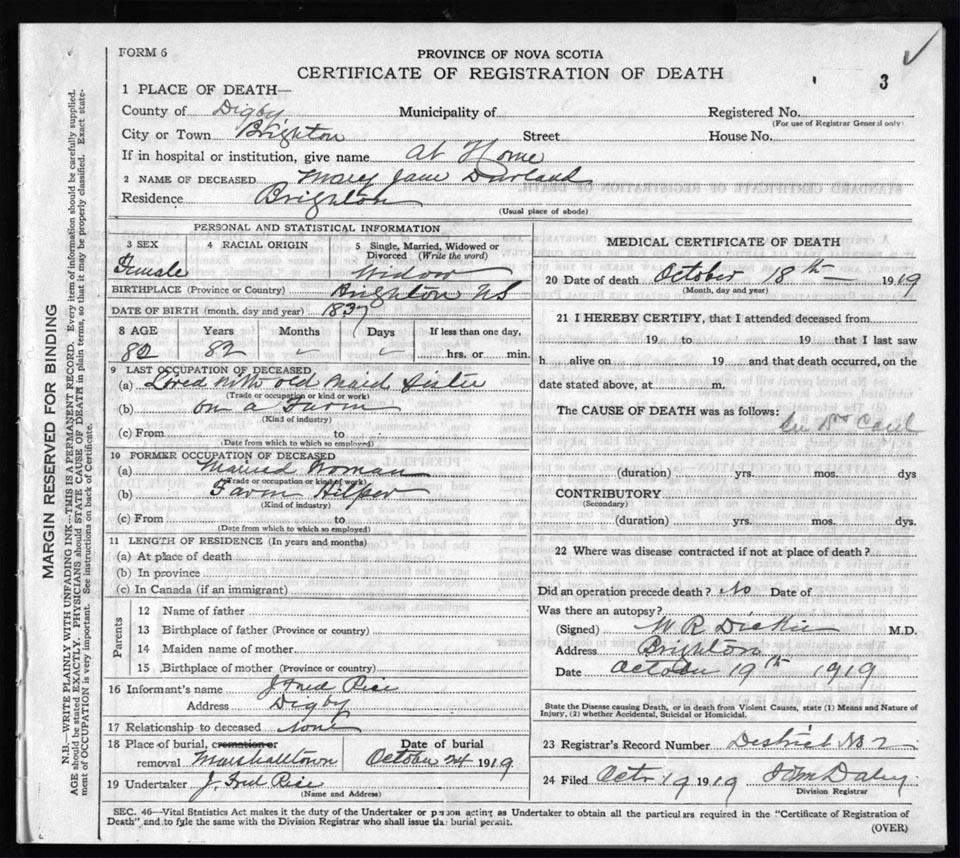 FORM 6
PROVINCE OF NOVA SCOTIA
CERTIFICATE OF REGISTRATION OF DEATH
3
1 PLACE OF DEATH—
County of Digby Municipality of Registered No.
(For use of Registrar General only)
City or Town Brighton Street House No.
If in hospital or institution, give name at Home
2 NAME OF DECEASED Mary Jane Durland
Residence Brighton
(Usual place of abode)
PERSONAL AND STATISTICAL INFORMATION
3 SEX 4 RACIAL ORIGIN 5 Single, Married, Widowed or Divorced (Write the word)
Female Widow
BIRTHPLACE (Province or Country) Brighton NS
DATE OF BIRTH (month, day and year) 1837
8 AGE Years Months Days If less than one day,
82 82 hrs. or min.
9 LAST OCCUPATION OF DECEASED
(a) Lived with old maid Sister
(Trade or occupation or kind or work)
(b) on a Farm
(Kind of industry)
(c) From to
(Date from which to which so employed)
10 FORMER OCCUPATION OF DECEASED
(a) Married Woman
(Trade or occupation or kind of work)
(b) Farm Hilper
(Kind of industry)
(c) From to
(Date from which to which so employed)
11 LENGTH OF RESIDENCE (In years and months)
(a) At place of death
(b) In province
(c) In Canada (if an immigrant)
Parents
12 Name of father
13 Birthplace of father (Province or country)
14 Maiden name of mother
15 Birthplace of mother (Province or country)
16 Informant's name J Fred Rice
Address Digby
17 Relationship to deceased None
18 Place of burial, cremation or removal Marshalltown
Date of burial October 24 1919
19 Undertaker J. Fred Rice
(Name and Address)
MEDICAL CERTIFICATE OF DEATH
20 Date of death October 18th 1919
(Month, day and year)
21 I HEREBY CERTIFY, that I attended deceased from
19 to 19 that I last saw
h alive on 19 and that death occurred, on the
date stated above, at m.
The CAUSE OF DEATH was as follows:
See Drs Card
(duration) yrs. mos. dys
CONTRIBUTORY
(Secondary)
(duration) yrs. mos. dys.
22 Where was disease contracted if not at place of death?
Did an operation precede death? No Date of
Was there an autopsy?
(Signed) W R Dickie M.D.
Address Brighton
Date October 19th 1919
State the Disease causing Death, or in death from Violent Causes, state (1) Means and Nature of
Injury, (2) whether Accidental, Suicidal or Homicidal.
23 Registrar's Record Number District No 2
24 Filed Octr 19 1919 Daley
Division Registrar
SEC. 46—Vital Statistics Act makes it the duty of the Undertaker or person acting as Undertaker to obtain all the particulars required in the "Certificate of Registration of
Death" and to fyle the same with the Division Registrar who shall issue the burial permit.
(OVER)
MARGIN RESERVED FOR BINDING
N.B.—WRITE PLAINLY WITH UNFADING INK—THIS IS A PERMANENT RECORD. Every item of information should be carefully supplied.
AGE should be stated EXACTLY. PHYSICIANS should STATE CAUSE OF DEATH in plain terms, so that it may be properly classified. Exact state-
ment of OCCUPATION is very important. See instructions on back of Certificate.